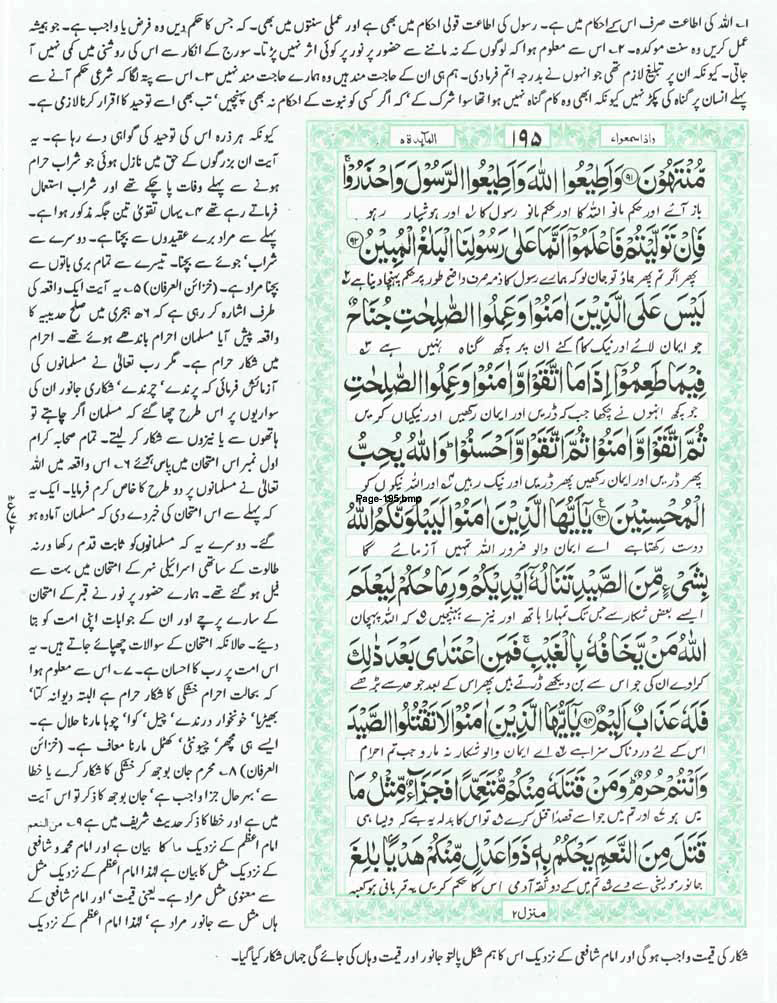 ۱۔ اللہ کی اطاعت صرف اس کے احکام میں ہے۔ رسول کی اطاعت قولی احکام میں بھی ہے اور عملی سنتوں میں بھی۔ کہ جس کا حکم دیں وہ فرض یا واجب ہے۔ جو ہمیشہ
عمل کریں وہ سنت موکدہ۔ ۲۔ اس سے معلوم ہوا کہ لوگوں کے نہ ماننے سے حضور پر نور پر کوئی اثر نہیں پڑتا۔ سورج کے انکار سے اس کی روشنی میں کمی نہیں آ
جاتی۔ کیونکہ ان پر تبلیغ لازم تھی جو انہوں نے بدرجہ اتم فرما دی۔ ہم ہی ان کے حاجت مند ہیں وہ ہمارے حاجت مند نہیں ۳۔ اس سے پتہ لگا کہ شرعی حکم آنے سے
پہلے انسان پر گناہ کی پکڑ نہیں کیونکہ ابھی وہ کام گناہ نہیں ہوا تھا سوا شرک کے‘ کہ اگر کسی کو نبوت کے احکام نہ بھی پہنچیں‘ تب بھی اسے توحید کا اقرار کرنا لازمی ہے۔
واذا سمعوا ۷
۱۹۵
المآئدۃ ۵
مُّنْتَهُوْنَ ۹۱ وَاَطِيْعُوا اللّٰهَ وَاَطِيْعُوا الرَّسُوْلَ وَاحْذَرُوْا ۚ
باز آئے اور حکم مانو اللہ کا اور حکم مانو رسول کا ۱؎ اور ہوشیار رہو
فَاِنْ تَوَلَّيْتُمْ فَاعْلَمُوْۤا اَنَّمَا عَلٰى رَسُوْلِنَا الْبَلٰغُ الْمُبِيْنُ ۹۲
پھر اگر تم پھر جاؤ تو جان لو کہ ہمارے رسول کا ذمہ صرف واضح طور پر حکم پہنچا دینا ہے ۲
لَيْسَ عَلَى الَّذِيْنَ اٰمَنُوْا وَعَمِلُوا الصّٰلِحٰتِ جُنَاحٌ
جو ایمان لائے اور نیک کام کئے ان پر کچھ گناہ نہیں ہے ۳
فِيْمَا طَعِمُوْۤا اِذَا مَا اتَّقَوْا وَّاٰمَنُوْا وَعَمِلُوا الصّٰلِحٰتِ
جو کچھ انہوں نے چکھا جب کہ ڈریں اور ایمان رکھیں اور نیکیاں کریں
ثُمَّ اتَّقَوْا وَّاٰمَنُوْا ثُمَّ اتَّقَوْا وَّاَحْسَنُوْا ؕ وَاللّٰهُ يُحِبُّ
پھر ڈریں اور ایمان رکھیں پھر ڈریں اور نیک رہیں ۴ اور اللہ نیکوں کو
الْمُحْسِنِيْنَ ۹۳ يٰۤاَيُّهَا الَّذِيْنَ اٰمَنُوْا لَيَبْلُوَنَّكُمُ اللّٰهُ
Page-195.bmp
دوست رکھتا ہے اے ایمان والو ضرور اللہ تمہیں آزمائے گا
بِشَيْءٍ مِّنَ الصَّيْدِ تَنَالُهٗۤ اَيْدِيْكُمْ وَرِمَاحُكُمْ لِيَعْلَمَ
ایسے بعض شکار سے جس تک تمہارا ہاتھ اور نیزے پہنچیں ۵ کہ اللہ پہچان
اللّٰهُ مَنْ يَّخَافُهٗ بِالْغَيْبِ ۚ فَمَنِ اعْتَدٰى بَعْدَ ذٰلِكَ
کرا دے ان کی جو اس سے بن دیکھے ڈرتے ہیں پھر اس کے بعد جو حد سے بڑھے
فَلَهٗ عَذَابٌ اَلِيْمٌ ۹۴ يٰۤاَيُّهَا الَّذِيْنَ اٰمَنُوْا لَا تَقْتُلُوا الصَّيْدَ
اس کے لئے درد ناک سزا ہے ۶ اے ایمان والو شکار نہ مارو جب تم احرام
وَاَنْتُمْ حُرُمٌ ؕ وَمَنْ قَتَلَهٗ مِنْكُمْ مُّتَعَمِّدًا فَجَزَآءٌ مِّثْلُ مَا
میں ہو ۷ اور تم میں جو اسے قصداً قتل کرے ۸ تو اس کا بدلہ یہ ہے کہ ویسا ہی
قَتَلَ مِنَ النَّعَمِ يَحْكُمُ بِهٖ ذَوَا عَدْلٍ مِّنْكُمْ هَدْيًۢا بٰلِغَ
جانور مویشی سے دے ۹ تم میں کے دو ثقہ آدمی اس کا حکم کریں یہ قربانی ہو کعبہ
منزل ۲
کیونکہ ہر ذرہ اس کی توحید کی گواہی دے رہا ہے۔ یہ
آیت ان بزرگوں کے حق میں نازل ہوئی جو شراب حرام
ہونے سے پہلے وفات پا چکے تھے اور شراب استعمال
فرماتے رہے تھے ۴۔ یہاں تقویٰ تین جگہ مذکور ہوا ہے۔
پہلے سے مراد برے عقیدوں سے بچنا ہے۔ دوسرے سے
شراب‘ جوئے سے بچنا۔ تیسرے سے تمام بری باتوں سے
بچنا مراد ہے۔ (خزائن العرفان) ۵۔ یہ آیت ایک واقعہ کی
طرف اشارہ کر رہی ہے کہ ۶ھ ہجری میں صلح حدیبیہ کا
واقعہ پیش آیا مسلمان احرام باندھے ہوئے تھے۔ احرام
میں شکار حرام ہے۔ مگر رب تعالیٰ نے مسلمانوں کی
آزمائش فرمائی کہ پرندے‘ چرندے‘ شکاری جانور ان کی
سواریوں پر اس طرح چھا گئے کہ مسلمان اگر چاہتے تو
ہاتھوں سے یا نیزوں سے شکار کر لیتے۔ تمام صحابہ کرام
اول نمبر اس امتحان میں پاس ہوگئے ۶۔ اس واقعہ میں اللہ
تعالیٰ نے مسلمانوں پر دو طرح کا خاص کرم فرمایا۔ ایک یہ
کہ پہلے سے اس امتحان کی خبر دے دی کہ مسلمان آمادہ ہو
گئے۔ دوسرے یہ کہ مسلمانوں کو ثابت قدم رکھا ورنہ
طالوت کے ساتھی اسرائیلی نہر کے امتحان میں بہت سے
فیل ہو گئے تھے۔ ہمارے حضور پر نور نے قبر کے امتحان
کے سارے پرچے اور ان کے جوابات اپنی امت کو بتا
دیئے۔ حالانکہ امتحان کے سوالات چھپائے جاتے ہیں۔ یہ
اس امت پر رب کا احسان ہے۔ ۷۔ اس سے معلوم ہوا
کہ بحالت احرام خشکی کا شکار حرام ہے البتہ دیوانہ کتا‘
بھیڑیا‘ خونخوار درندے‘ چیل‘ کوا‘ چوہا مارنا حلال ہے۔
ایسے ہی مچھر‘ چیونٹی‘ کھٹمل مارنا معاف ہے۔ (خزائن
العرفان) ۸۔ محرم جان بوجھ کر خشکی کا شکار کرے یا خطا
سے‘ بہرحال جزا واجب ہے‘ جان بوجھ کا ذکر تو اس آیت
میں ہے اور خطا کا ذکر حدیث شریف میں ہے ۹۔ من النعم
امام اعظم کے نزدیک ما کا بیان ہے اور امام محمد و شافعی
کے نزدیک مثل کا بیان ہے لہٰذا امام اعظم کے نزدیک مثل
سے معنوی مثل مراد ہے۔ یعنی قیمت‘ اور امام شافعی کے
ہاں مثل سے جانور مراد ہے‘ لہٰذا امام اعظم کے نزدیک
شکار کی قیمت واجب ہوگی اور امام شافعی کے نزدیک اس کا ہم شکل پالتو جانور اور قیمت وہاں کی جائے گی جہاں شکار کیا گیا۔